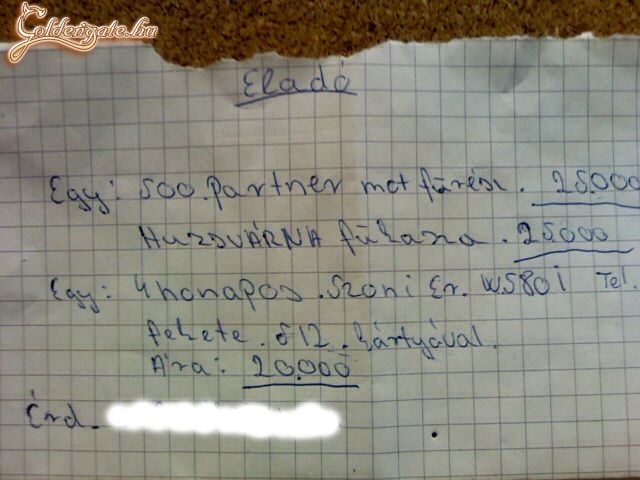 Goldengate.hu
Eladó
Egy: 500. partner mot fűrész. 25000
HUZSVÁRNA fűkasza. 25000
Egy: 4 honapos. Szoni Er. W580i Tel.
fekete. 512. kártyával.
Ára: 20.000
Érd.